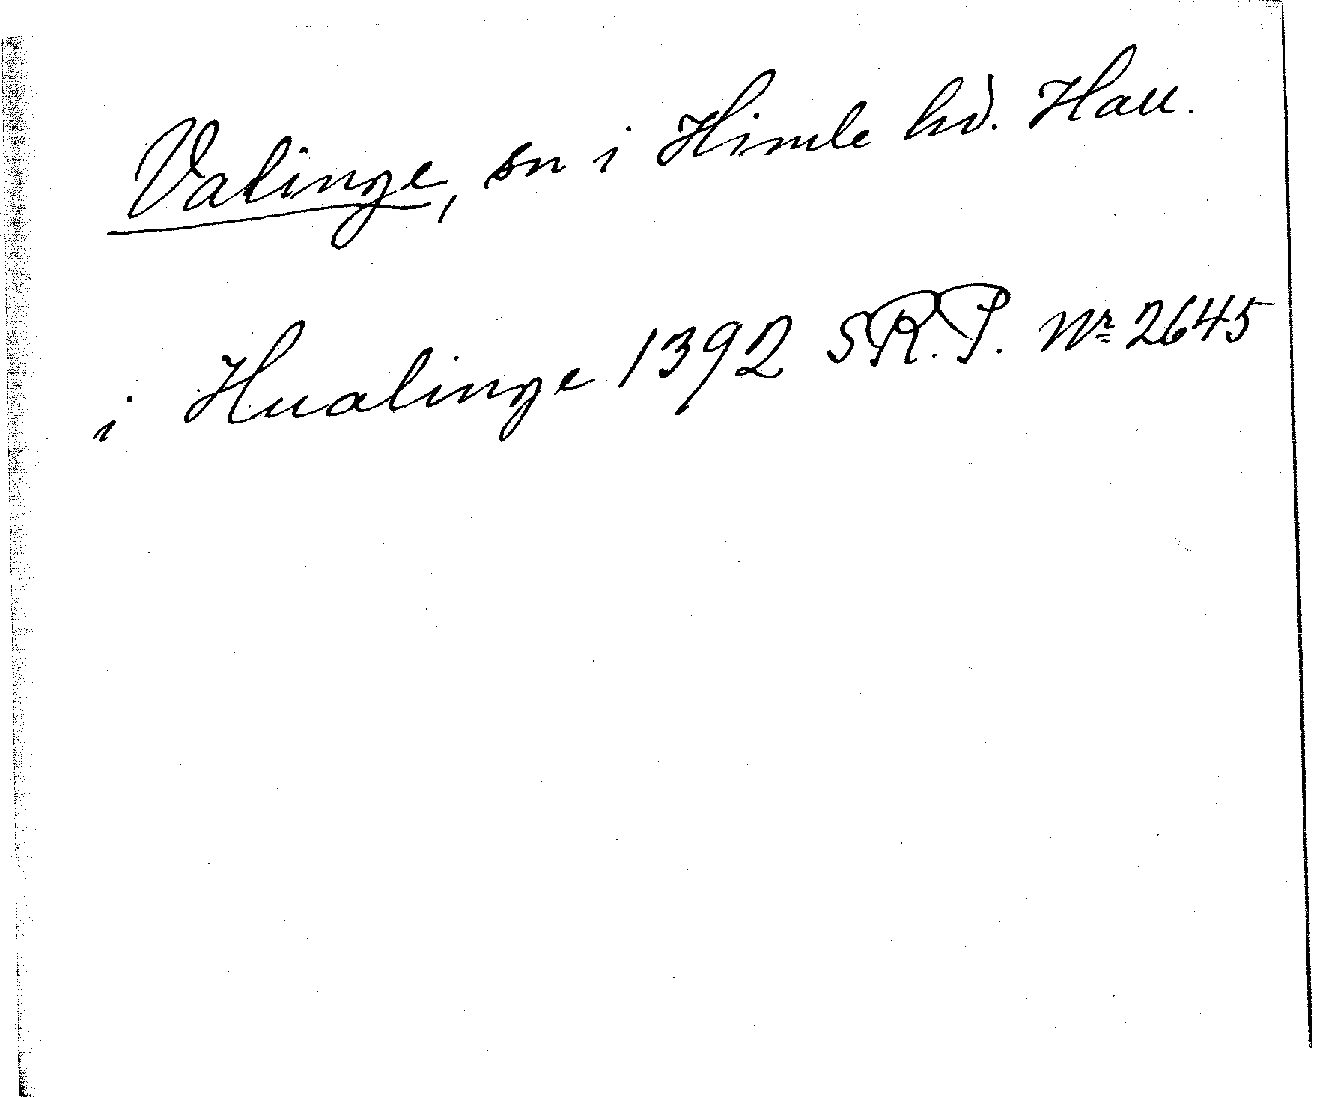 Valinge, sn i Himle hd. Hall.
i Hualinge 1392 SRP. Nr 2645